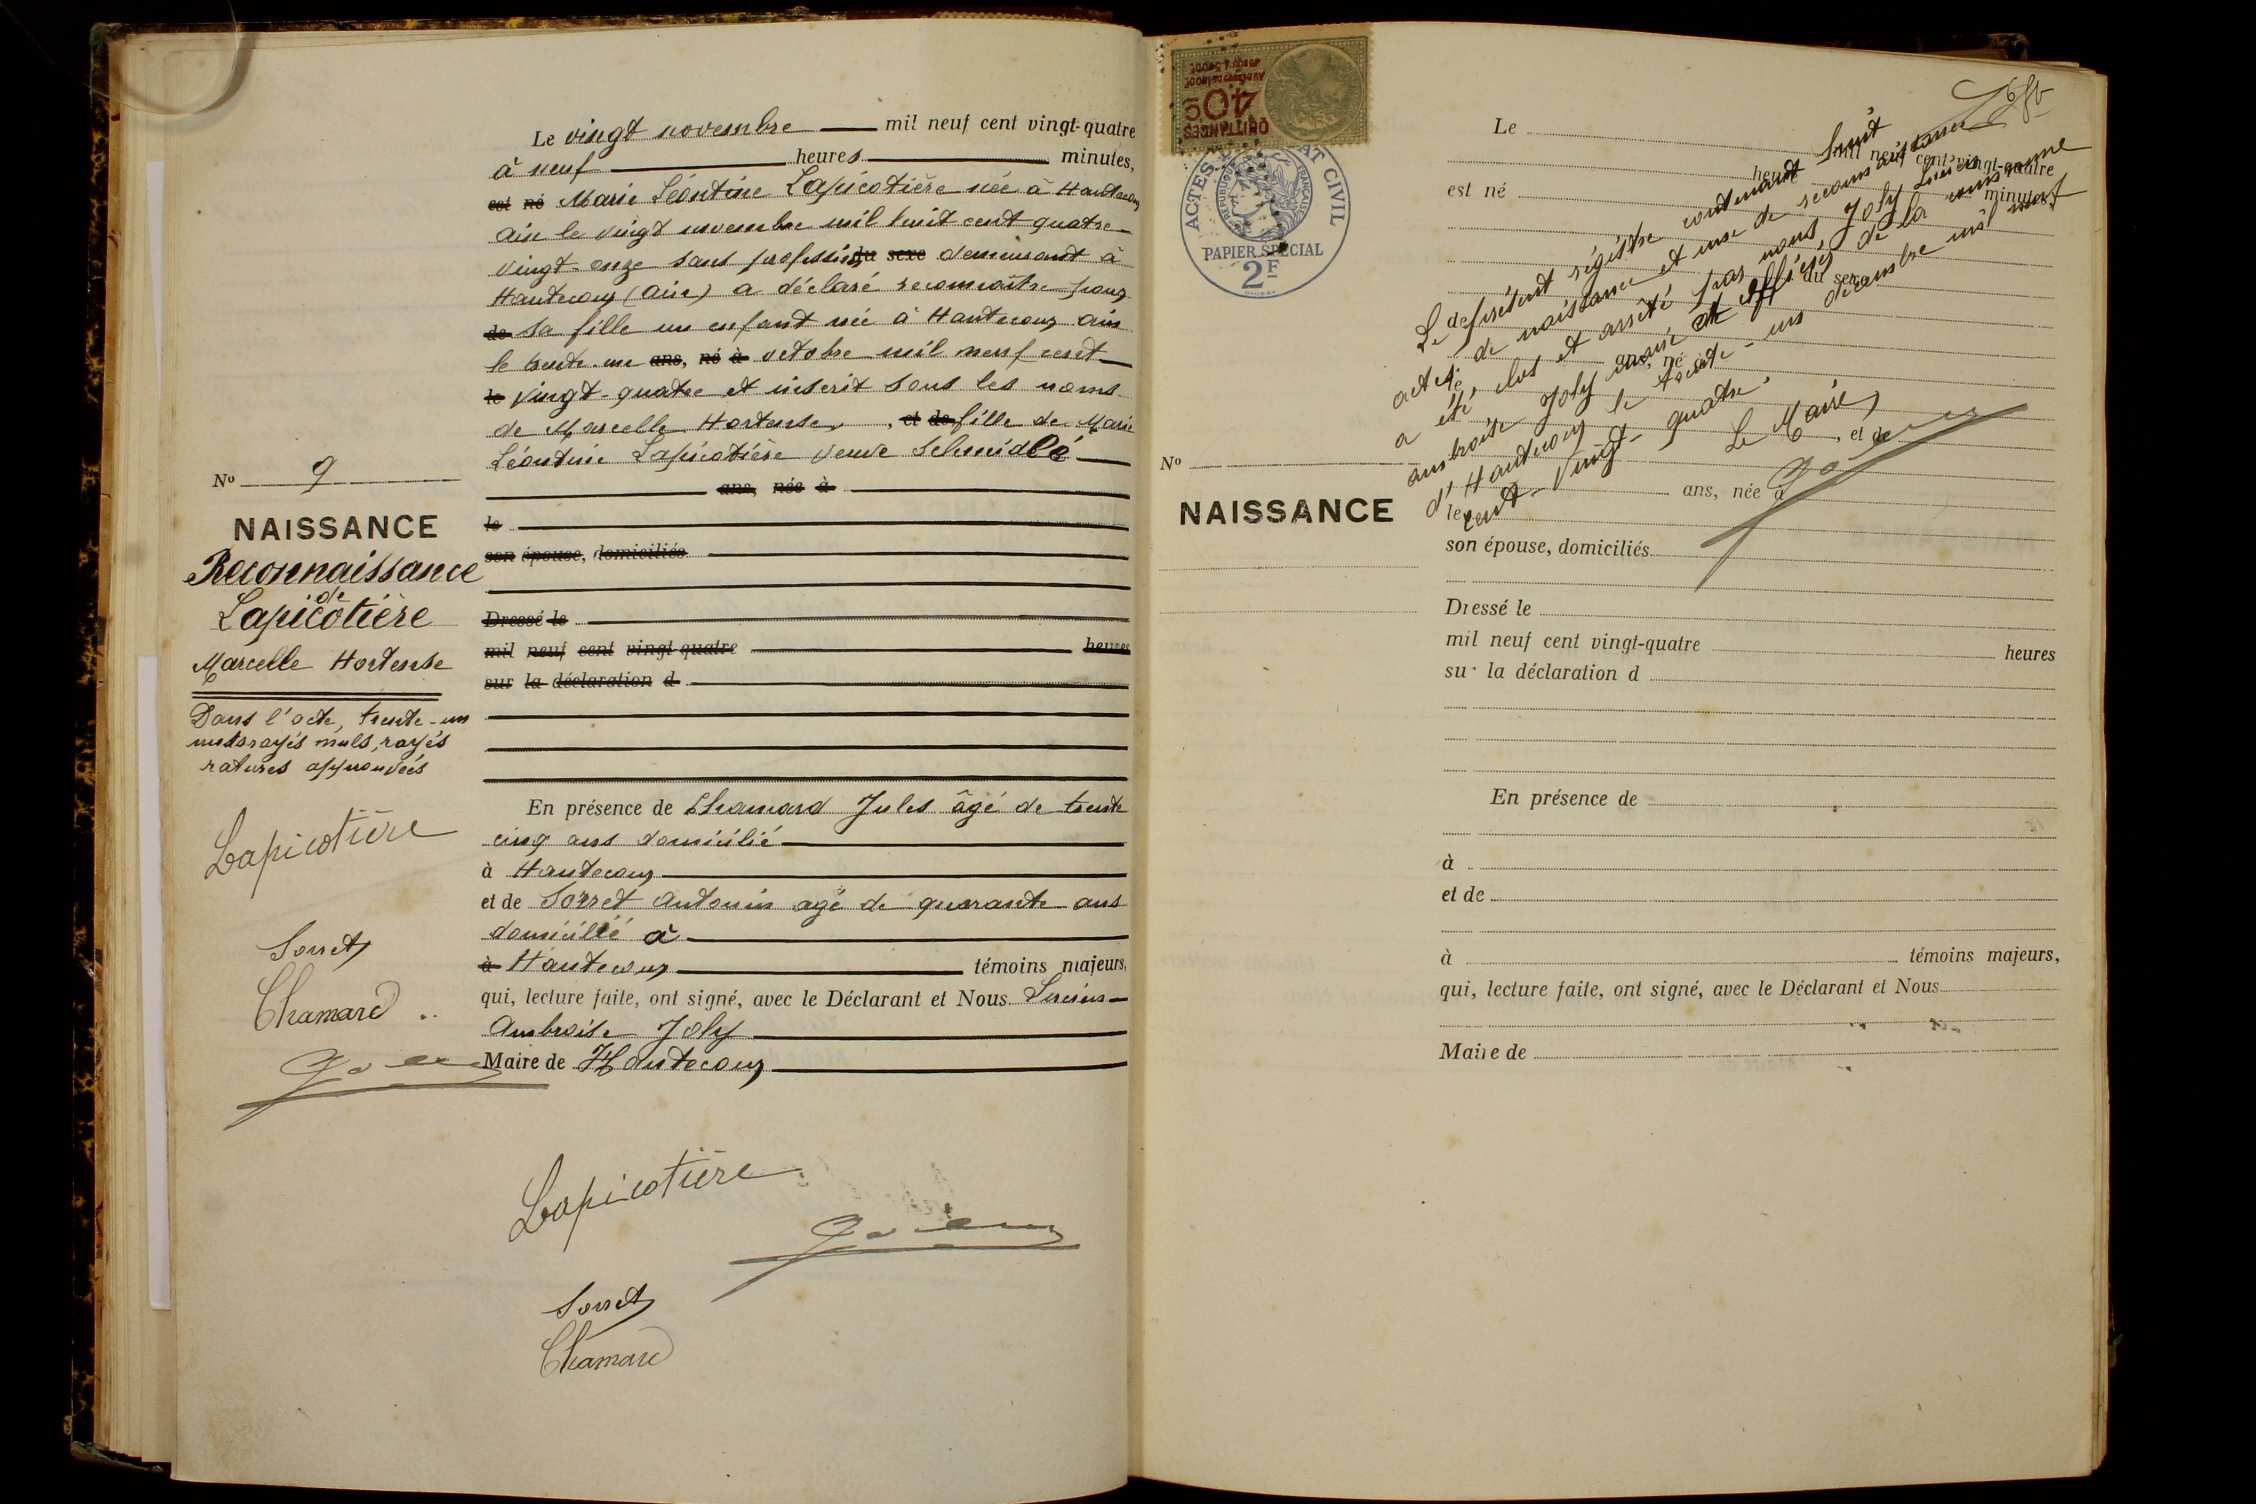 Le vingt novembre mil neuf cent vingt-quatre
à neuf heures minutes,
est né Marie Léontine Lapicotière née à Hautecour
Ain le vingt novembre mil huit cent quatre-
vingt-onze sans profession du sexe demeurant à
Hautecour (Ain) a déclaré reconnaître pour
de sa fille un enfant née à Hautecour Ain
le trente-un ans, né à octobre mil neuf cent
le vingt-quatre et inscrit sous les noms
de Marcelle Hortense, et de fille de Marie
Léontine Lapicotière veuve
ans, née à
le
son épouse, domiciliés
Dressé le
mil neuf cent vingt-quatre heures
sur la déclaration d
En présence de Chamard Jules âgé de trente
cinq ans domicilié
à Hautecour
et de Sorret Antonin agé de quarante ans
domicilié à
à Hautecour témoins majeurs,
qui, lecture faite, ont signé, avec le Déclarant et Nous Lucien
Ambroise Joly
Maire de Hautecour
Lapicotière
Sorret
Chamard
No 9
NAISSANCE
Reconnaissance
de
Lapicotière
Marcelle Hortense
Dans l'acte, trente-un
mots rayés nuls, rayés
ratures approuvées
Lapicotière
Sorret
Chamard
QUITTANCES
40c
ACTES ÉTAT CIVIL
RÉPUBLIQUE FRANÇAISE
PAPIER SPÉCIAL
2F
No
NAISSANCE
Le
mil neuf cent vingt-quatre
heures minutes,
est né
du sexe
de
ans, né à
le
, et de
ans, née à
le
son épouse, domiciliés
Dressé le
mil neuf cent vingt-quatre
heures
sur la déclaration d
En présence de
à
et de
à témoins majeurs,
qui, lecture faite, ont signé, avec le Déclarant et Nous
Maire de
Le présent régistre contenant huit
actes de naissance et une de reconnaissance
a été clos et arrêté par nous Joly Lucien
Ambroise Joly maire et officier de la commune
d'Hautecour le trente-un décembre mil neuf
cent-vingt-quatre.
Le Maire